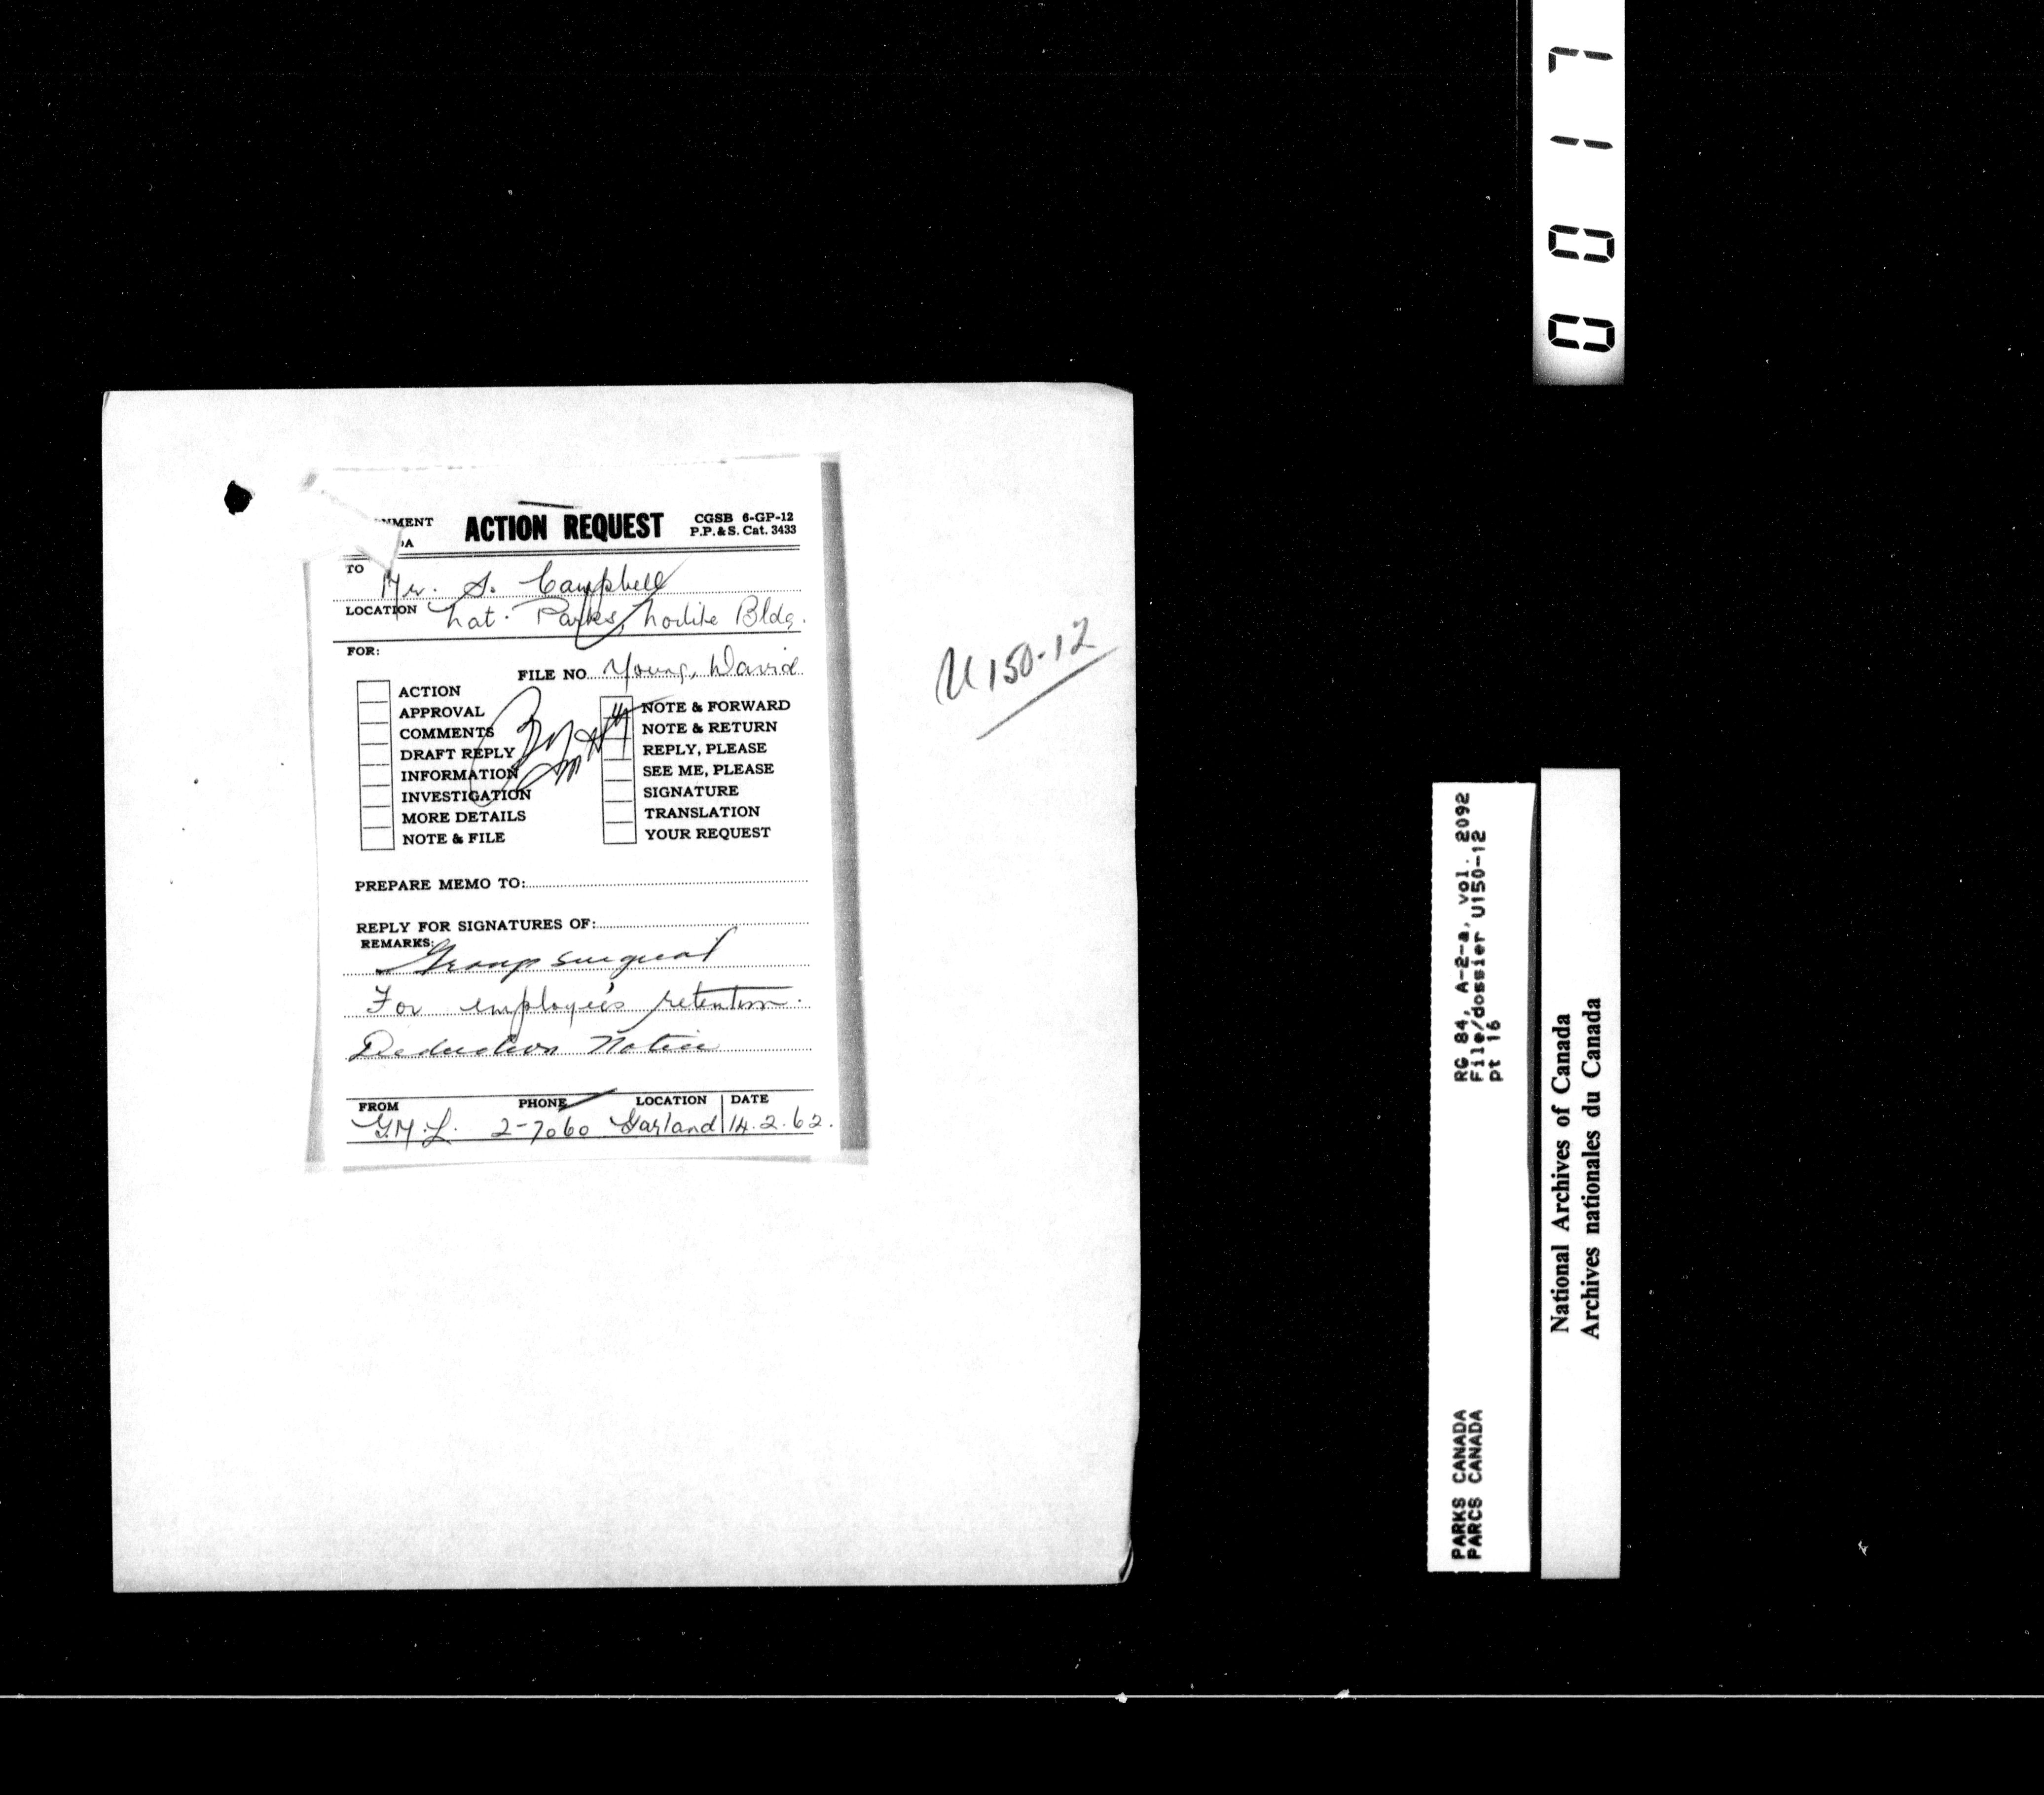 NMENT
DA
ACTION REQUEST
CGSB 6-GP-12
P.P.&S. Cat. 3433
TO Mr. S. Campbell
LOCATION Nat. Parks, Norlite Bldg.
FOR:
FILE NO. Young, David
ACTION
APPROVAL
COMMENTS
DRAFT REPLY
INFORMATION
INVESTIGATION
MORE DETAILS
NOTE & FILE
NOTE & FORWARD
NOTE & RETURN
REPLY, PLEASE
SEE ME, PLEASE
SIGNATURE
TRANSLATION
YOUR REQUEST
PREPARE MEMO TO:
REPLY FOR SIGNATURES OF:
REMARKS:
Group surgical
For employee's retention.
Deduction Notice
FROM PHONE LOCATION DATE
G.M.L. 2-7060 Garland 14.2.62.
U150-12
0017
RG 84, A-2-a, vol. 2092
File/dossier U150-12
pt 16
PARKS CANADA
PARCS CANADA
National Archives of Canada
Archives nationales du Canada